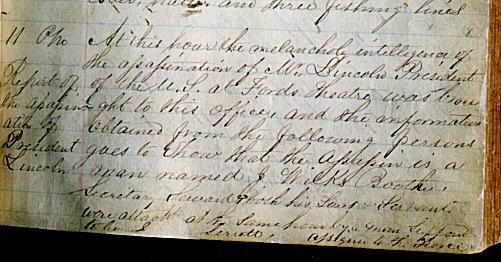 and three fishing lines
11 Pm At this hour the melancholy intelligence of
the assassination of Mr. Lincoln President
Report of of the U.S. at Fords Theatre was brou
the assassin- ght to this office, and the information
ation of obtained from the following persons
President goes to show that the assassin is a
Lincoln man named J. Wilks Booth.
Secretary Seward & both his sons & Servants
were attackt at the same hour by a man supposed
to be